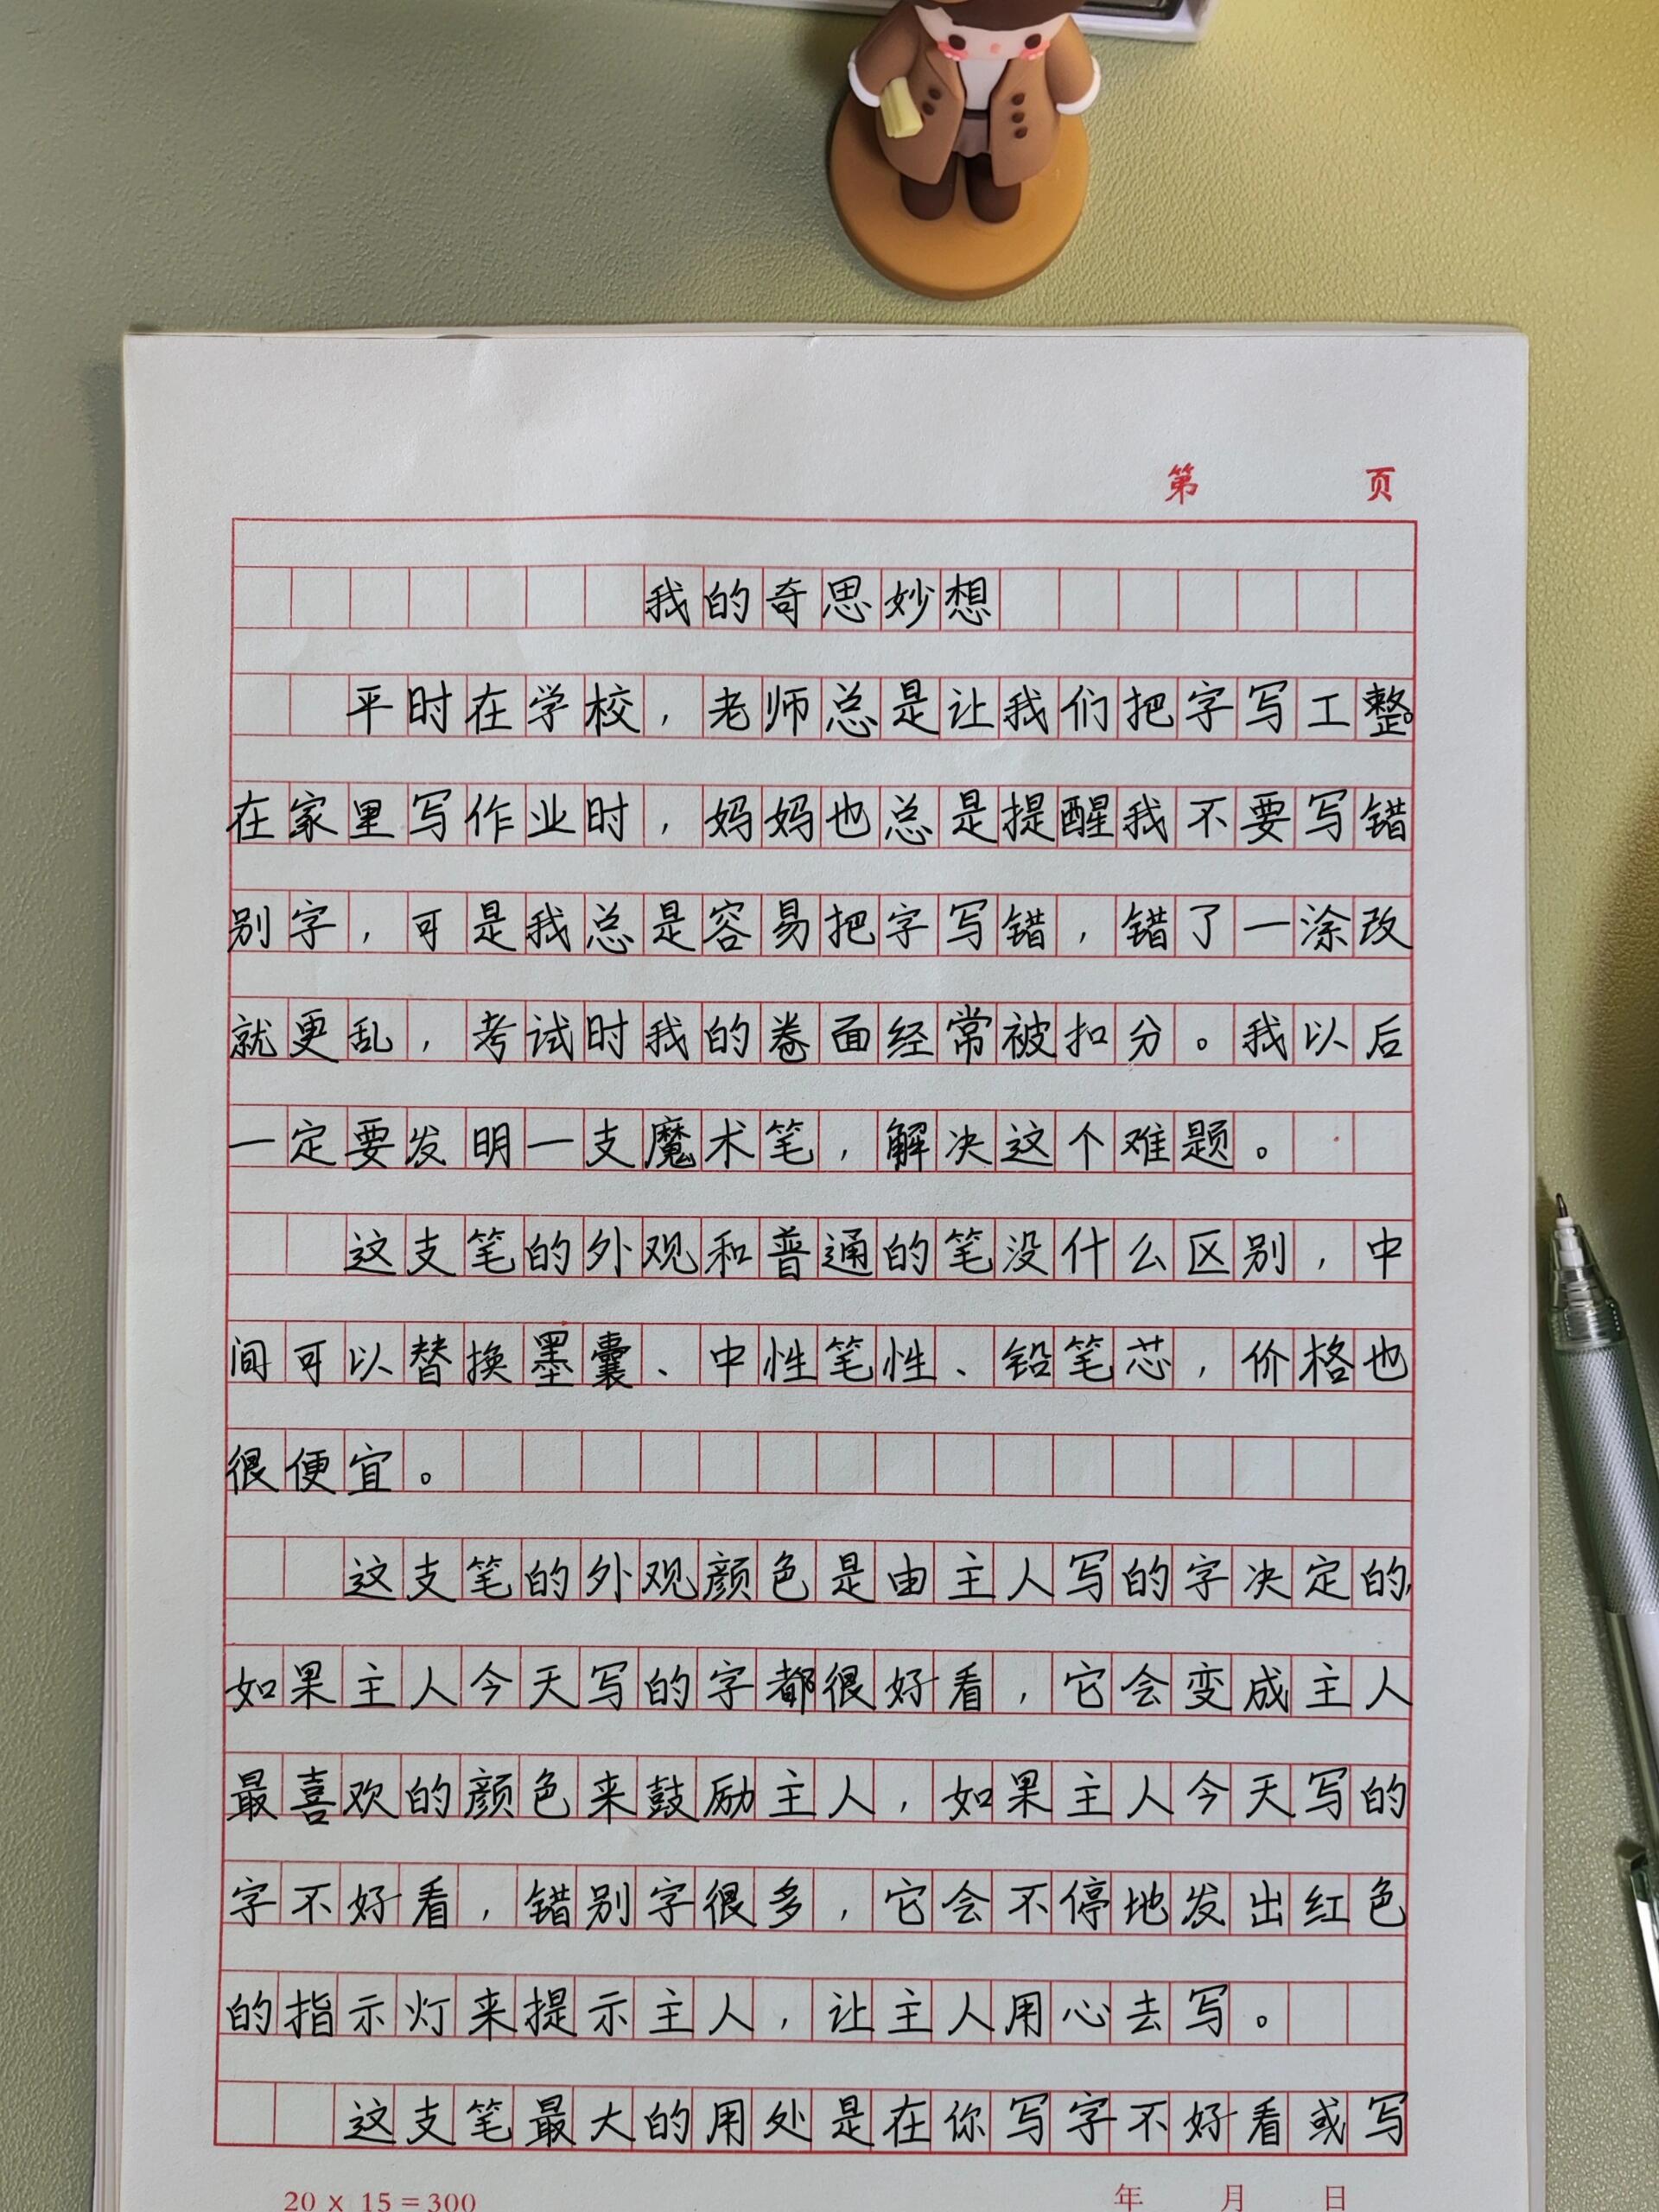 第 页
我的奇思妙想
平时在学校，老师总是让我们把字写工整。
在家里写作业时，妈妈也总是提醒我不要写错
别字，可是我总是容易把字写错，错了一涂改
就更乱，考试时我的卷面经常被扣分。我以后
一定要发明一支魔术笔，解决这个难题。
这支笔的外观和普通的笔没什么区别，中
间可以替换墨囊、中性笔性、铅笔芯，价格也
很便宜。
这支笔的外观颜色是由主人写的字决定的，
如果主人今天写的字都很好看，它会变成主人
最喜欢的颜色来鼓励主人，如果主人今天写的
字不好看，错别字很多，它会不停地发出红色
的指示灯来提示主人，让主人用心去写。
这支笔最大的用处是在你写字不好看或写
20 x 15 = 300 年 月 日